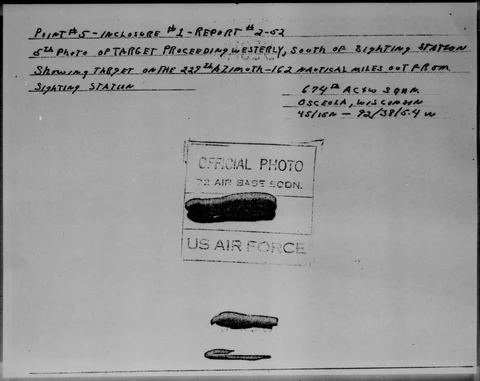 POINT #5 - INCLOSURE #1 - REPORT #2-52
5th PHOTO OF TARGET PROCEEDING WESTERLY, SOUTH OF SIGHTING STATION
SHOWING TARGET ON THE 227th AZIMUTH - 162 NAUTICAL MILES OUT FROM
SIGHTING STATION
674th ACEW SQDN
OSCEOLA, WISCONSIN
45/15N - 92/38/5.4 W
OFFICIAL PHOTO
72 AIR BASE SCDN.
US AIR FORCE